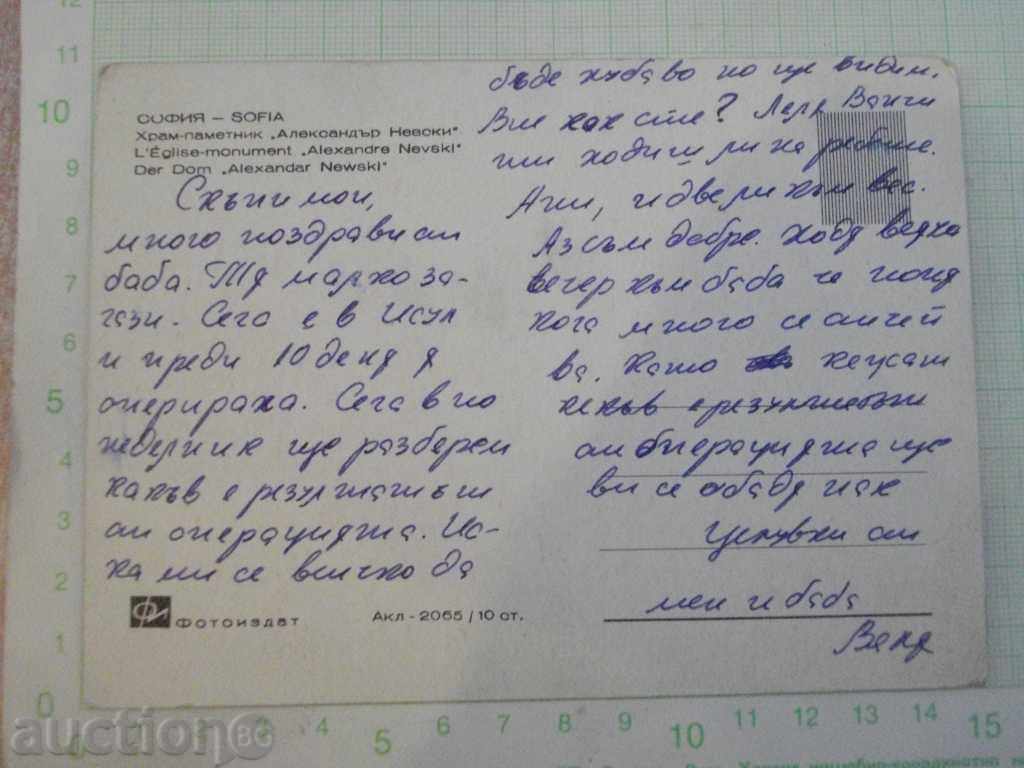 СОФИЯ – SOFIA
Храм-паметник „Александър Невски"
L'Église-monument „Alexandre Nevski"
Der Dom „Alexandar Newski"
Скъпи мои,
много поздрави от
баба. Тя малко за-
гази. Сега е в Исул
и преди 10 деня я
оперираха. Сега в по
неделник ще разберем
какъв е резултатът
от операцията. Ис-
ка ми се всичко да
бъде хубаво но ще видим.
Вие как сте? Ванчи
ходи ли на
Ати, и двери към вас.
Аз съм добре. Ходя всяка
вечер към баба че поня
кога много се отчай
ва. Като
какъв е резултатът
от операцията ще
ви се обадя пак
Целувки от
мен и баба
Ваня
Фотоиздат
Акл - 2065 / 10 ст.
auction BG
12
11
10
9
8
7
6
5
4
3
2
1
0
2
3
4
5
6
7
8
9
10
11
12
13
14
15